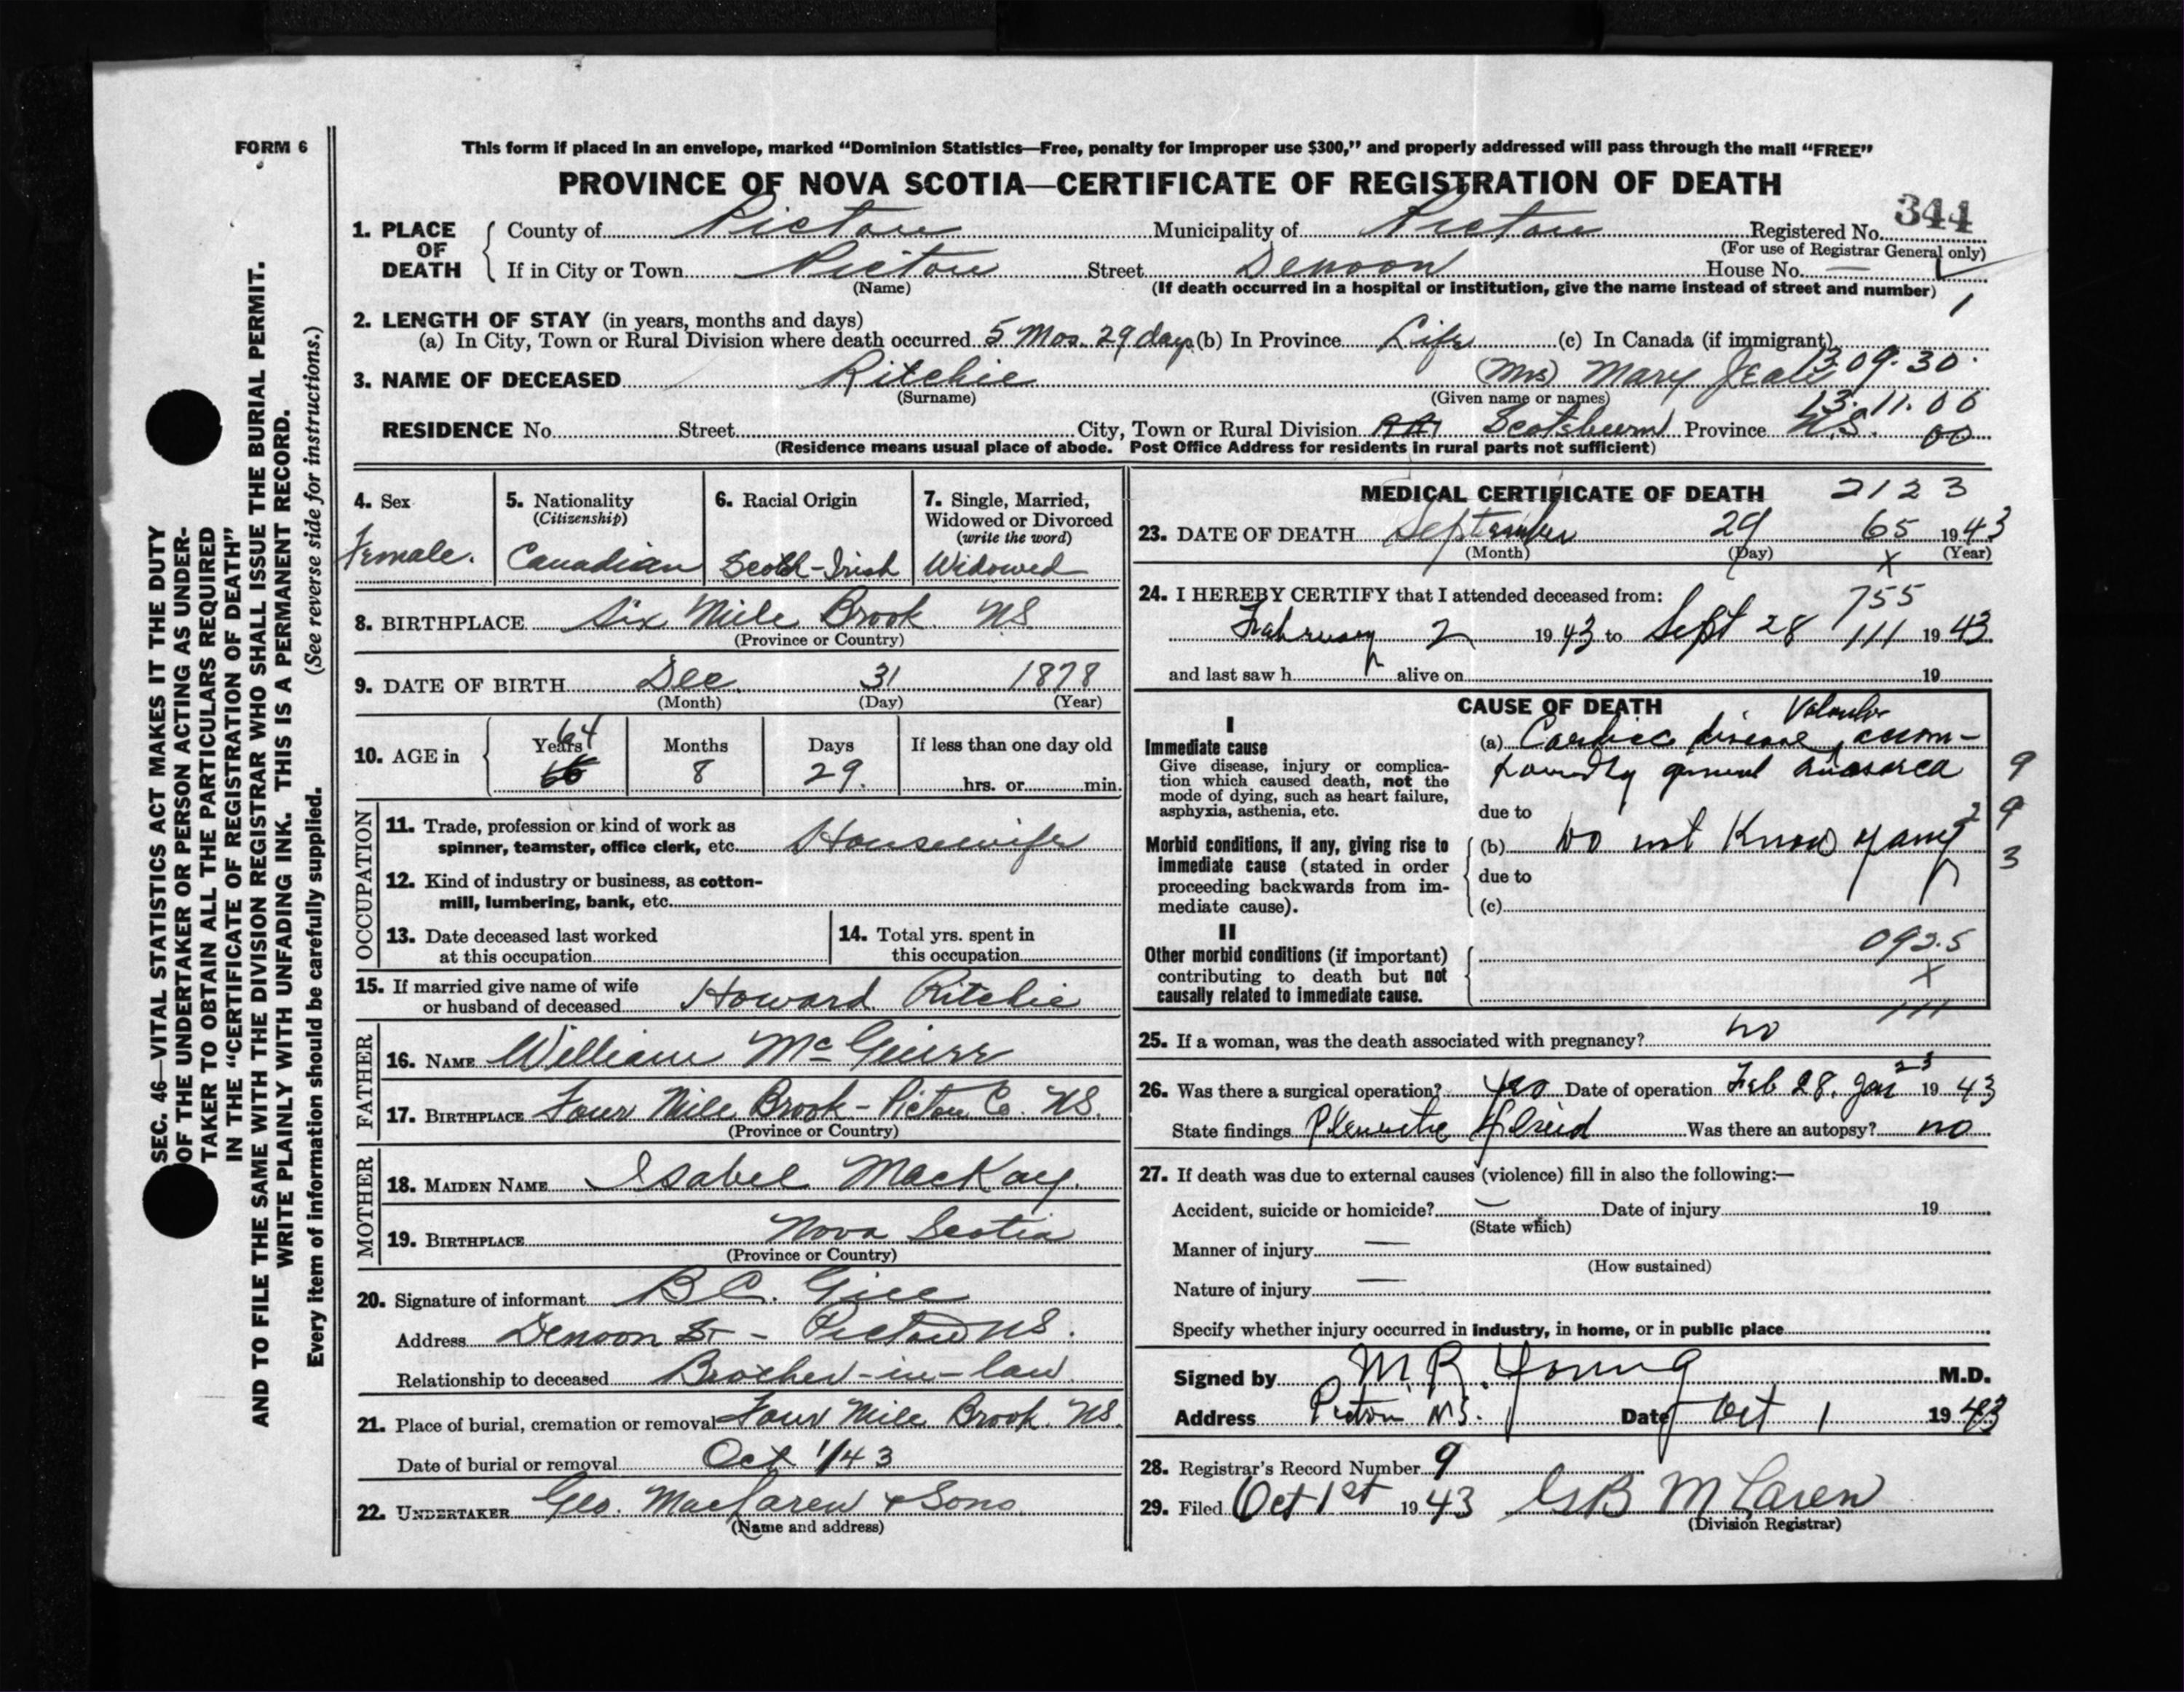 FORM 6
This form if placed in an envelope, marked “Dominion Statistics—Free, penalty for improper use $300,” and properly addressed will pass through the mail “FREE”
PROVINCE OF NOVA SCOTIA—CERTIFICATE OF REGISTRATION OF DEATH
344
1. PLACE OF DEATH County of Pictou Municipality of Pictou Registered No.
(For use of Registrar General only)
If in City or Town Pictou Street Denoon House No. —
(Name) (If death occurred in a hospital or institution, give the name instead of street and number)
2. LENGTH OF STAY (in years, months and days)
(a) In City, Town or Rural Division where death occurred 5 Mos. 29 days (b) In Province Life (c) In Canada (if immigrant)
13.09.30
3. NAME OF DECEASED Ritchie (Mrs) Mary Jean
(Surname) (Given name or names)
13.11.00
RESIDENCE No. Street City, Town or Rural Division Scotsburn Province N.S. 00
(Residence means usual place of abode. Post Office Address for residents in rural parts not sufficient)
4. Sex
Female.
5. Nationality
(Citizenship)
Canadian
6. Racial Origin
Scotch-Irish
7. Single, Married,
Widowed or Divorced
(write the word)
Widowed
8. BIRTHPLACE Six Mile Brook NS
(Province or Country)
9. DATE OF BIRTH Dec. 31 1878
(Month) (Day) (Year)
10. AGE in Years 64 Months 8 Days 29. If less than one day old
hrs. or min.
OCCUPATION
11. Trade, profession or kind of work as
spinner, teamster, office clerk, etc. Housewife
12. Kind of industry or business, as cotton-
mill, lumbering, bank, etc.
13. Date deceased last worked
at this occupation
14. Total yrs. spent in
this occupation
15. If married give name of wife
or husband of deceased Howard Ritchie
FATHER
16. NAME William
17. BIRTHPLACE Four Mile Brook - Pictou Co. NS.
(Province or Country)
MOTHER
18. MAIDEN NAME Isabel MacKay.
19. BIRTHPLACE Nova Scotia
(Province or Country)
20. Signature of informant B C. Gill
Address Denoon St - Pictou NS.
Relationship to deceased Brother-in-law
21. Place of burial, cremation or removal Four Mile Brook. NS.
Date of burial or removal Oct 1/43
22. UNDERTAKER Geo. MacLaren & Sons
(Name and address)
MEDICAL CERTIFICATE OF DEATH 2123
23. DATE OF DEATH September 29 65 1943
(Month) (Day) x (Year)
24. I HEREBY CERTIFY that I attended deceased from: 755
February 2 1943 to Sept 28 111 1943
and last saw h r alive on 19
CAUSE OF DEATH
I
Immediate cause
Give disease, injury or complica-
tion which caused death, not the
mode of dying, such as heart failure,
asphyxia, asthenia, etc.
Valvular
(a) Cardiac disease,
general anasarca
due to
Morbid conditions, if any, giving rise to
immediate cause (stated in order
proceeding backwards from im-
mediate cause).
(b) Do not Know of any
due to
(c)
9
9
3
II
Other morbid conditions (if important)
contributing to death but not
causally related to immediate cause.
092.5
X
111
25. If a woman, was the death associated with pregnancy? no
26. Was there a surgical operation? Date of operation Feb 28. Jan 23 1943
State findings Was there an autopsy? no
27. If death was due to external causes (violence) fill in also the following:—
Accident, suicide or homicide? — Date of injury 19
(State which)
Manner of injury —
(How sustained)
Nature of injury —
Specify whether injury occurred in industry, in home, or in public place
Signed by M. R. Young M.D.
Address Pictou N.S. Date Oct 1 1943
28. Registrar's Record Number 9
29. Filed Oct 1st 1943 M Laren
(Division Registrar)
SEC. 46—VITAL STATISTICS ACT MAKES IT THE DUTY
OF THE UNDERTAKER OR PERSON ACTING AS UNDER-
TAKER TO OBTAIN ALL THE PARTICULARS REQUIRED
IN THE “CERTIFICATE OF REGISTRATION OF DEATH”
AND TO FILE THE SAME WITH THE DIVISION REGISTRAR WHO SHALL ISSUE THE BURIAL PERMIT.
WRITE PLAINLY WITH UNFADING INK. THIS IS A PERMANENT RECORD.
Every item of information should be carefully supplied. (See reverse side for instructions.)